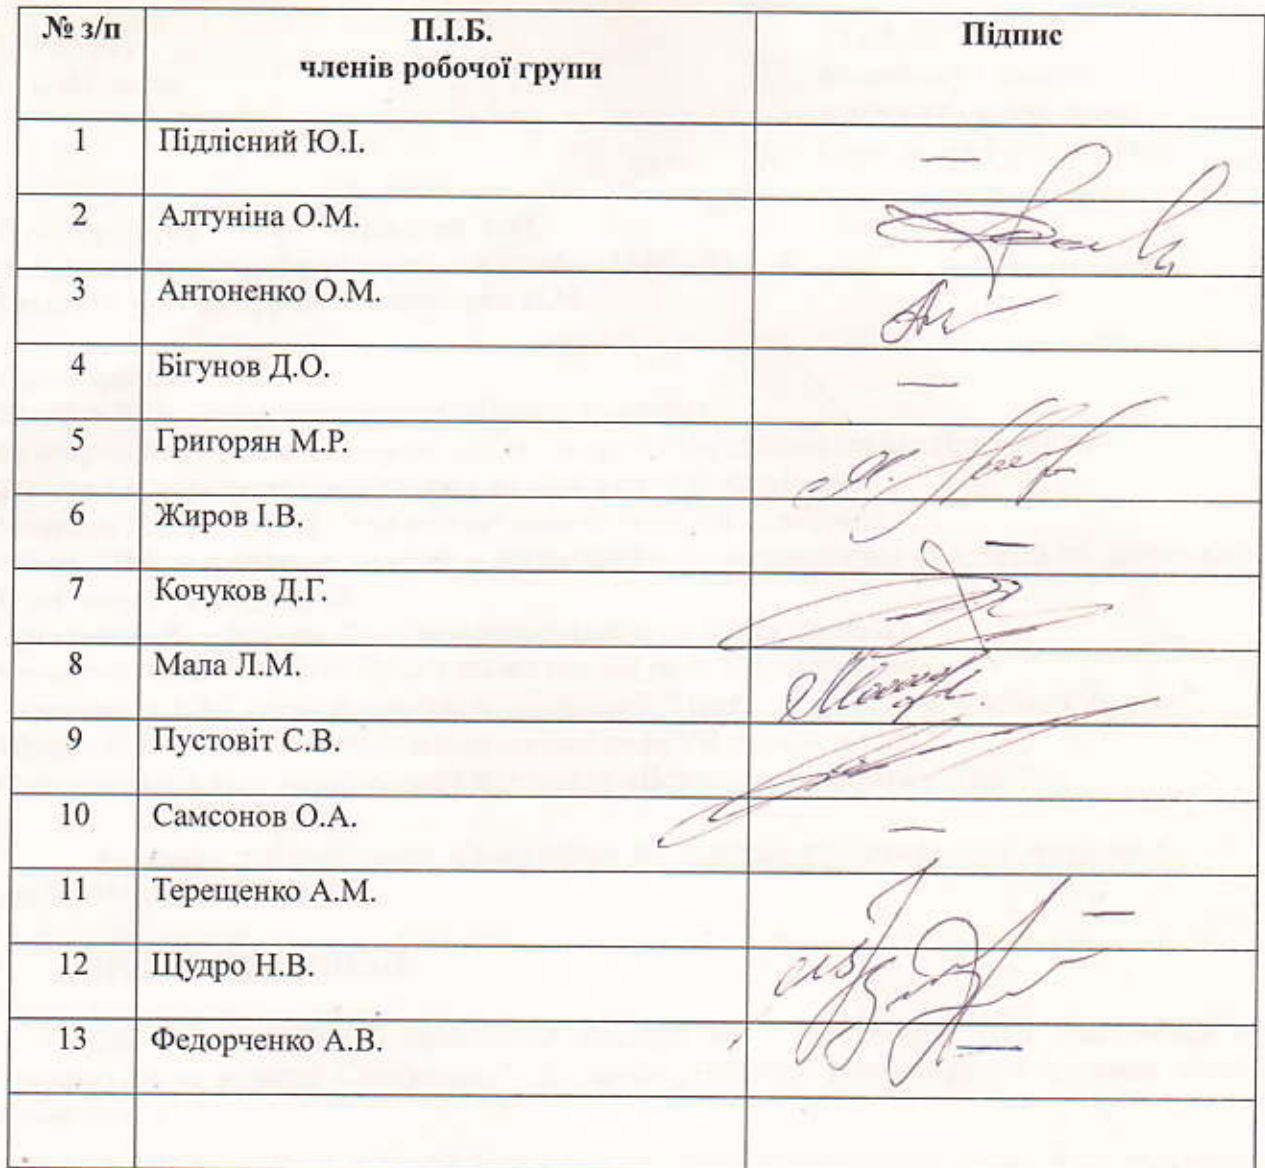 № з/п П.І.Б. Підпис
членів робочої групи
1 Підлісний Ю.І. —
2 Алтуніна О.М.
3 Антоненко О.М.
4 Бігунов Д.О. —
5 Григорян М.Р.
6 Жиров І.В. —
7 Кочуков Д.Г.
8 Мала Л.М.
9 Пустовіт С.В.
10 Самсонов О.А. —
11 Терещенко А.М. —
12 Щудро Н.В.
13 Федорченко А.В. —